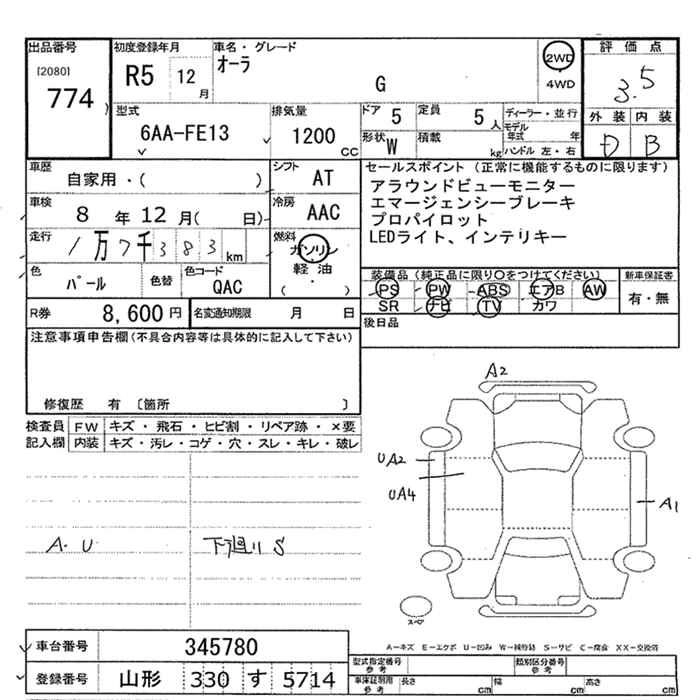 出品番号
[2080]
774
初度登録年月
R5 12月
車名・グレード
オーラ
G
2WD
4WD
評価点
3.5
外装 内装
D B
型式
6AA-FE13
排気量
1200 CC
ドア 5
定員 5人
形状 W
積載 kg
ディーラー・並行
モデル年式 年
ハンドル 左・右
車歴
自家用・( )
シフト
AT
車検
8年12月( 日)
冷房
AAC
走行
1万7千383km
燃料
ガソリン
軽油
( ・ )
色
パール
色替
色コード
QAC
R券
8,600円
名変通知期限 月 日
セールスポイント (正常に機能するものに限ります)
アラウンドビューモニター
エマージェンシーブレーキ
プロパイロット
LEDライト、インテリキー
装備品(純正品に限り○をつけてください)
PS PW ABS エアB AW
SR ナビ TV カワ
新車保証書
有・無
後日品
注意事項申告欄(不具合内容等は具体的に記入して下さい)
修復歴 有 〔箇所 〕
検査員記入欄
FW キズ・飛石・ヒビ割・リペア跡・×要
内装 キズ・汚レ・コゲ・穴・スレ・キレ・破レ
A・U
下廻りS
A2
UA2
UA4
A1
スペア
A-キズ E-エクボ U-凹み W-補修跡 S-サビ C-腐食 XX-交換済
車台番号 345780
登録番号 山形 330 す 5714
型式指定番号 参考
類別区分番号 参考
車庫証明用 参考
長さ cm 幅 cm 高さ cm